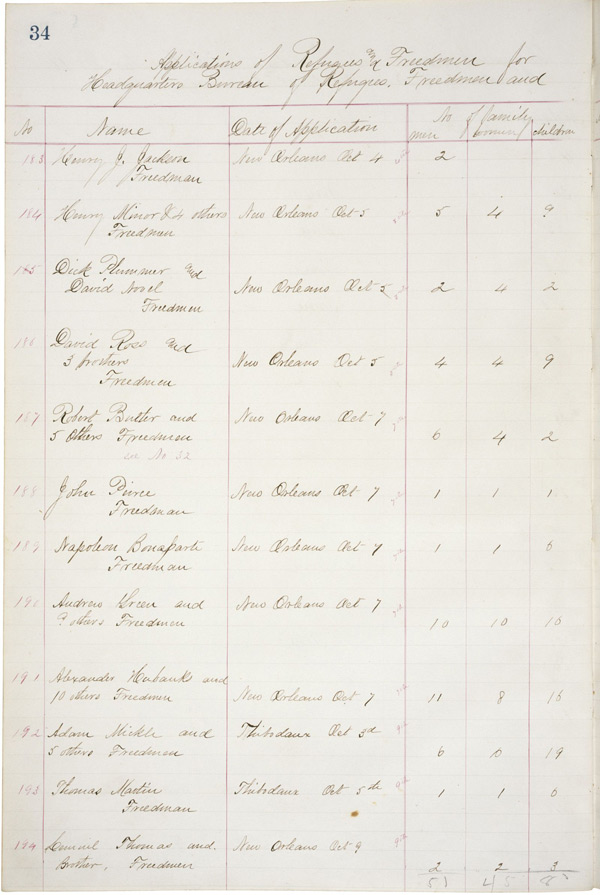 34
Applications of Refugees and Freedmen for
Headquarters Bureau of Refugees, Freedmen and
No Name Date of Application No of family
men women children
183 Henry J. Jackson New Orleans Oct 4 2
Freedman
184 Henry Minor & 4 others New Orleans Oct 5 5 4 9
Freedmen
185 Dick Plummer and
David Novel New Orleans Oct 5 2 4 2
Freedmen
186 David Ross and
3 brothers New Orleans Oct 5 4 4 9
Freedmen
187 Robert Butler and New Orleans Oct 7
5 others Freedmen 6 4 2
see No 32
188 John Pierce New Orleans Oct 7 1 1 1
Freedman
189 Napoleon Bonaparte New Orleans Oct 7 1 1 6
Freedman
190 Andrew Green and New Orleans Oct 7
9 others Freedmen 10 10 10
191 Alexander and
10 others Freedmen New Orleans Oct 7 11 8 16
192 Adam Mickle and Thibodaux Oct 3d
5 others Freedmen 6 10 19
193 Thomas Martin Thibodaux Oct 5th 1 1 6
Freedman
194 Thomas and New Orleans Oct 9
Brother, Freedmen 2 2 3
51 45